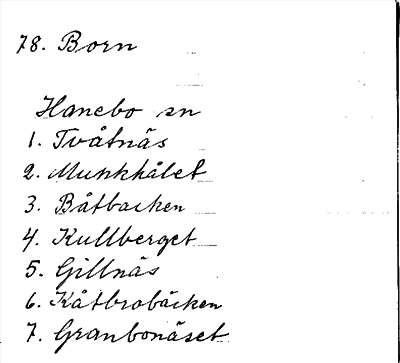 78. Born
Hanebo sn
1. Tvåtnäs
2. Munkhålet
3. Båtbacken
4. Kullberget
5. Gillnäs
6. Kåtbrobäcken
7. Granbonäset